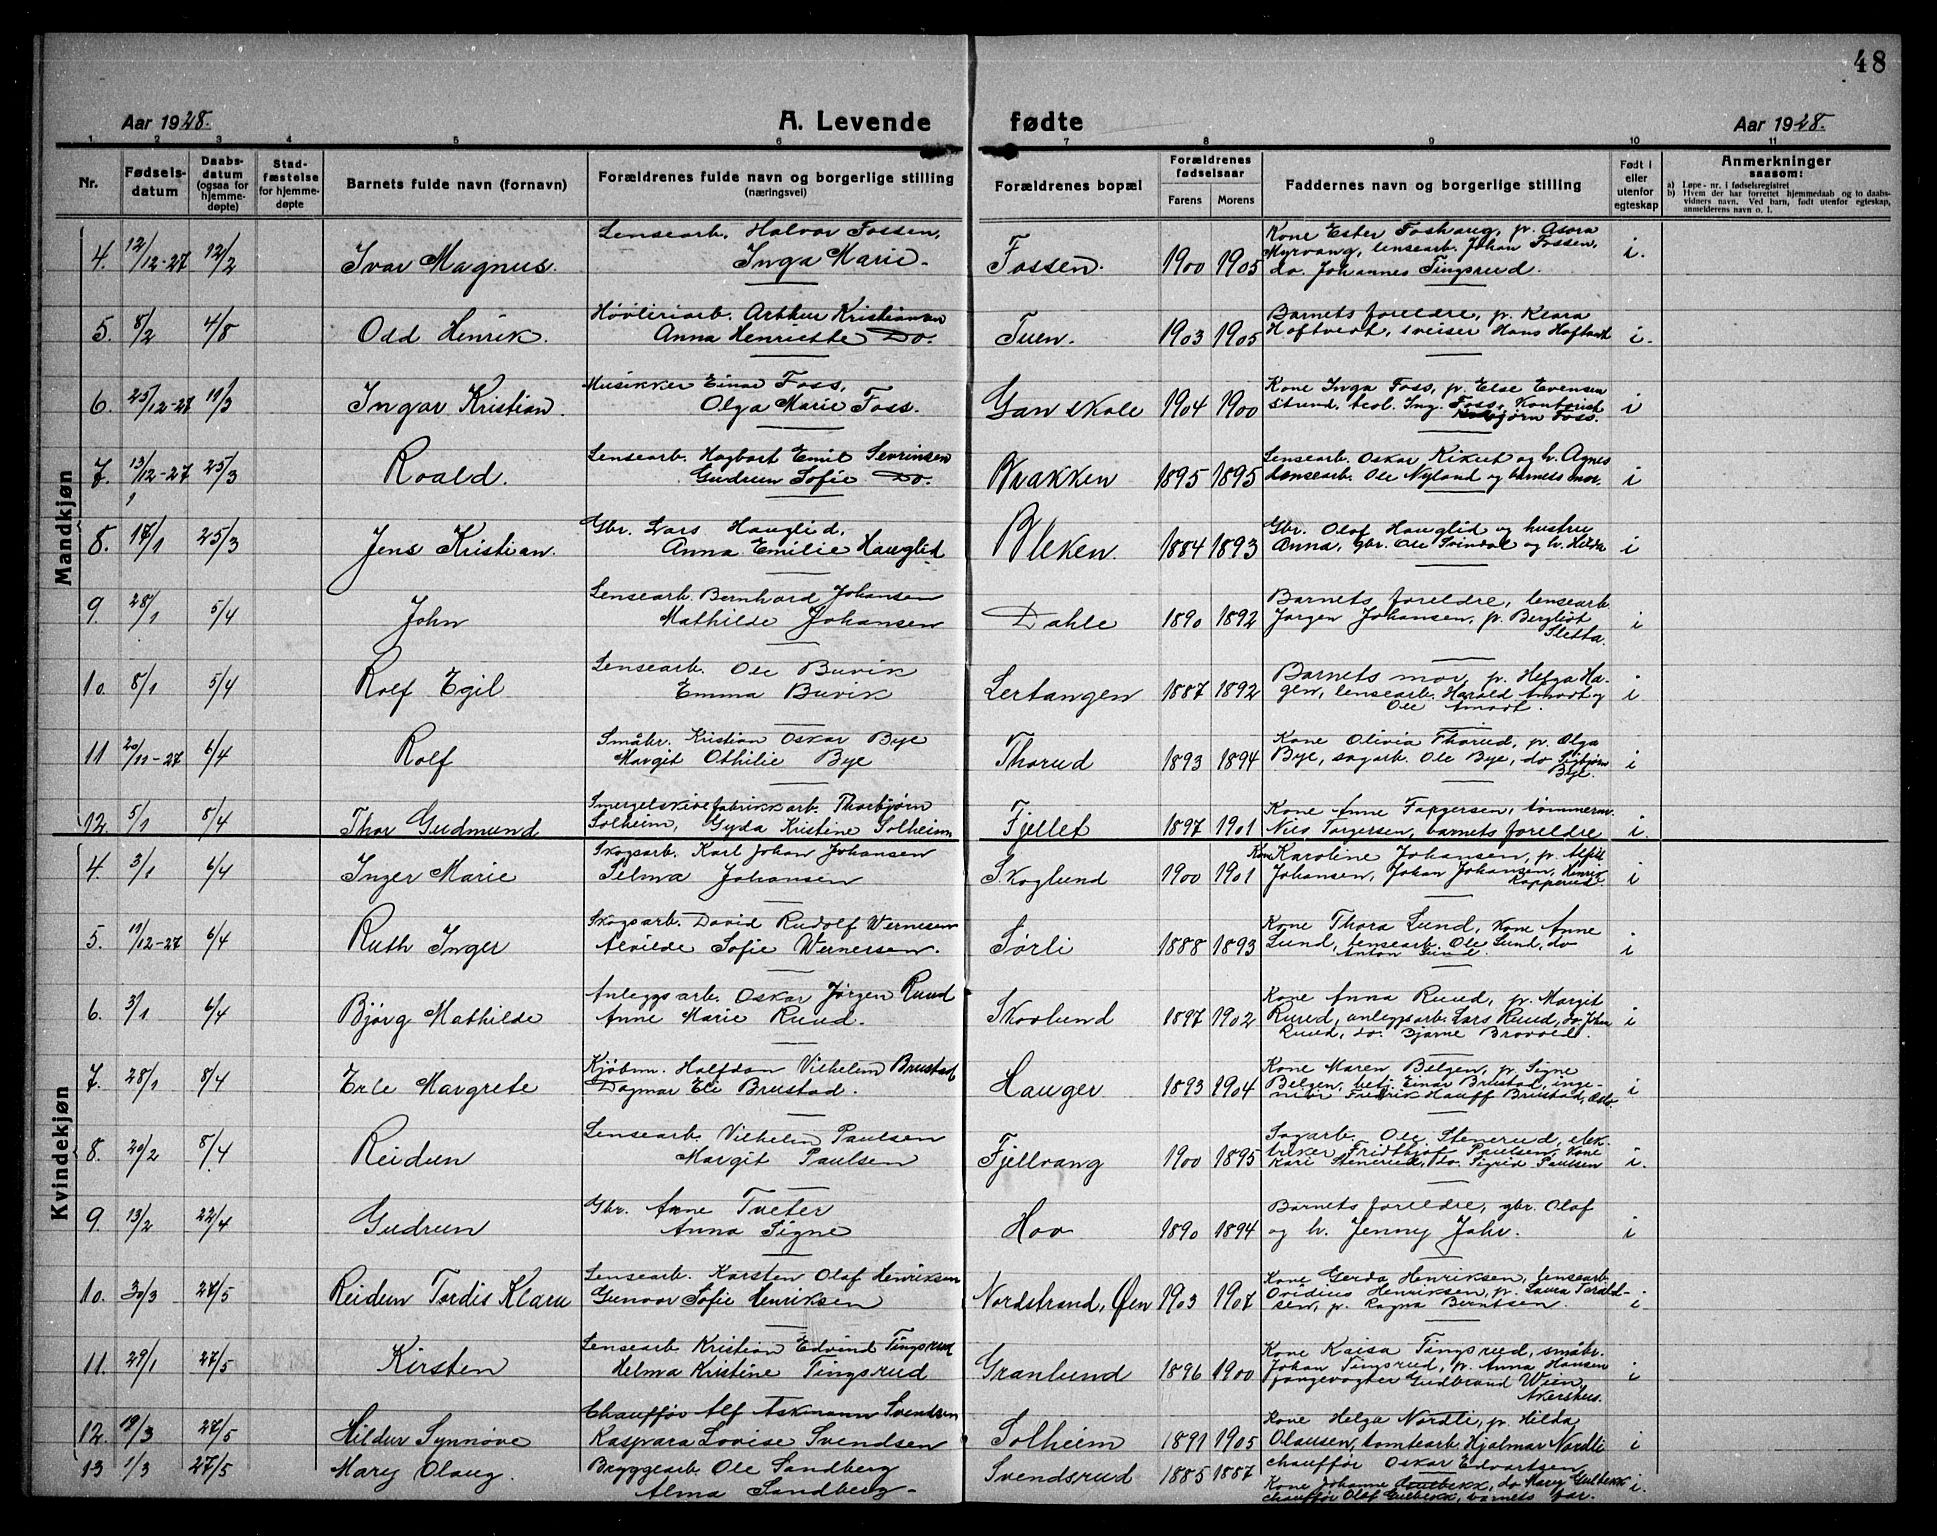 48
Aar 1928.
A. Levende fødte
Aar 1928.
1 2 3 4 5 6 7 8 9 10 11
Nr.
Fødsels-
datum
Daabs-
datum
(ogsaa for
hjemme-
døpte)
Stad-
fæstelse
for hjemme-
døpte
Barnets fulde navn (fornavn)
Forældrenes fulde navn og borgerlige stilling
(næringsvei)
Forældrenes bopæl
Forældrenes
fødselsaar
Farens Morens
Faddernes navn og borgerlige stilling
Født i
eller
utenfor
egteskap
Anmerkninger
saasom:
a) Løpe-nr. i fødselsregistret
b) Hvem der har forrettet hjemmedaab og to daabs-
vidners navn. Ved barn, født utenfor egteskap,
anmelderens navn o. l.
Mandkjøn
4. 12/12-27 12/2 Ivar Magnus. Lensearb. Halvor Fossen,
Inga Marie - Fossen. 1900 1905 Kone Ester Foshaug, p. Asora
Myrvang, lensearb. Johan Fossen,
do. Johannes Tingsrud. i.
5. 8/2 4/8 Odd Henrik. Høvleriarb. Arthur Kristiansen
Anna Henriette Do. Tuen. 1903 1905 Barnets foreldre, p. Klara
Hoftvedt, sveiser Hans Hoftvedt i.
6. 25/12-27 11/3 Ingar Kristian. Musikker Einar Foss,
Olga Marie Foss. Gan skole 1904 1900 Kone Inga Foss, p. Else Evensen
Strand, teol. Ing. Foss, Kontorist
bjørn Foss. i
7. 13/12-27 25/3 Roald. Lensearb. Hagbart Emil Sevrinsen
Gudrun Sofie Do. Brakken 1895 1895 Lensearb. Oskar Kikut og h. Agnes
Lensearb. Ole Nyland og barnets mor. i
8. 17/1 25/3 Jens Kristian. Gbr. Lars Hauglid,
Anna Emilie Hauglid Bleken. 1884 1893 Gbr. Olaf Hauglid og hustru
Anna, gbr. Ole Svindal og h. Hilda i
9 28/1 5/4 John Lensearb. Bernhard Johansen
Mathilde Johansen Dahle 1890 1892 Barnets foreldre, lensearb.
Jørgen Johansen, p. Bergliot
Sletta. i
10. 8/1 5/4 Rolf Egil Lensearb. Ole Buvik
Emma Buvik Lertangen 1887 1892 Barnets mor, p. Helga Ha-
gen, lensearb. Harald Amodt og
Ole Amodt. i
11 20/11-27 6/4 Rolf Småbr. Kristian Oskar Bye
Margit Othilie Bye Thorud 1893 1894 Kone Olivia Thorud, p. Olga
Bye, sagarb. Ole Bye, do Sigbjørn
Bye. i
12. 5/1 8/4 Thor Gudmund Smergelskivefabrikkarb. Thorbjørn
Solheim, Gyda Kristine Solheim Fjellet 1897 1901 Kone Anne Torgersen, tømmerm.
Nils Torgersen, barnets foreldre i.
Kvindekjøn
4. 3/1 6/4 Inger Marie Skogsarb. Karl Johan Johansen
Selma Johansen Skoglund 1900 1901 Kone Karoline Johansen, p. Alfill
Johansen, Johan Johansen, Henrik
Kopperud. i
5. 11/12-27 6/4 Ruth Inger Skogsarb. David Rudolf Wernersen
Alvilde Sofie Wernersen. Sørli 1888 1893 Kone Thora Lund, kone Anne
Lund, lensearb. Ole Lund, do
Anton Lund. i
6. 3/1 6/4 Bjørg Mathilde Anleggsarb. Oskar Jørgen Ruud
Anne Marie Ruud. Skovlund 1897 1902 Kone Anna Ruud, p. Margit
Ruud, anleggsarb. Lars Ruud, do. Johan
Ruud, do. Bjarne Brovold. i
7. 28/1 8/4 Erle Margrete Kjøbm. Halfdan Vilhelm Brustad
Dagmar Ele Brustad. Hauger 1893 1904 Kone Maren Belgen, p. Signe
Belgen, betj. Einar Brustad, inge-
niør Fredrik Hauff Brustad, Oslo. i
8. 20/2 8/4 Reidun Lensearb. Vilhelm Paulsen
Margit Paulsen Fjellvang 1900 1895 Sagarb. Ole Stenerud, elek-
triker Fridthjof Paulsen, Kone
Kari Stenerud, do. Sigrid Paulsen i.
9. 13/2 22/4 Gudrun Gbr. Arne Tveter
Anna Signe Hov 1890 1894 Barnets foreldre, gbr. Olaf
og h. Jenny Jahr. i
10. 30/3 27/5 Reidun Tordis Klara Lensearb. Karsten Olaf Henriksen
Gunvor Sofie Henriksen Nordstrand, Øen 1903 1907 Kone Gerda Henriksen, lensearb.
Ovidius Henriksen, p. Laura Tarald-
sen, p. Ragna Berntsen. i
11. 29/1 27/5 Kirsten Lensearb Kristian Edvind Tingsrud
Helma Kristine Tingsrud Granlund 1896 1900 Kone Kaisa Tingsrud, småbr.
Johan Tingsrud, p. Anna Hansen
fangevogter Gudbrand Wien,
Akershus. i
12. 19/3 27/5 Hildur Synnøve Chauffør Alf Askmann Svendsen
Kaspara Lovise Svendsen Solheim 1891 1905 Kone Helga Nordli, p. Hilda
Olausen, tomtearb. Hjalmar Nordli
chauffør Oskar Edvartsen i
13 1/3 27/5 Mary Olaug. Bryggearb. Ole Sandberg
Alma Sandberg - Svendsrud 1885 1887 Kone Johanne Gulbekk, do Mary Gulbekk
chauffør Olaf Gulbekk, barnets far. i.